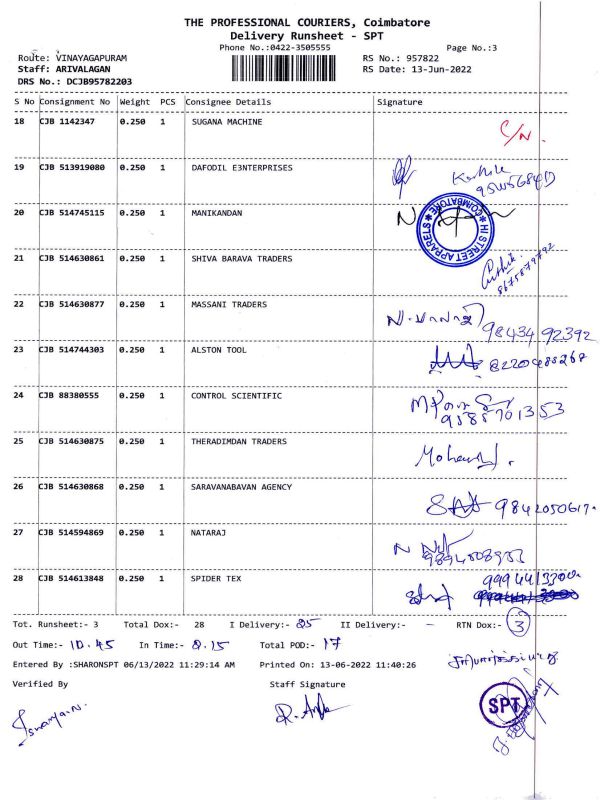 THE PROFESSIONAL COURIERS, Coimbatore
Delivery Runsheet - SPT
Phone No.:0422-3505555 Page No.:3
Route: VINAYAGAPURAM RS No.: 957822
Staff: ARIVALAGAN RS Date: 13-Jun-2022
DRS No.: DCJB95782203
S No Consignment No Weight PCS Consignee Details Signature
18 CJB 1142347 0.250 1 SUGANA MACHINE C/N.
19 CJB 513919080 0.250 1 DAFODIL E3NTERPRISES
20 CJB 514745115 0.250 1 MANIKANDAN
HI STREET APPARELS * COIMBATORE *
21 CJB 514630861 0.250 1 SHIVA BARAVA TRADERS
8675879792
22 CJB 514630877 0.250 1 MASSANI TRADERS
98434 92392
23 CJB 514744303 0.250 1 ALSTON TOOL
8220488267
24 CJB 88380555 0.250 1 CONTROL SCIENTIFIC
9585701353
25 CJB 514630875 0.250 1 THERADIMDAN TRADERS
26 CJB 514630868 0.250 1 SARAVANABAVAN AGENCY
9842050617
27 CJB 514594869 0.250 1 NATARAJ
28 CJB 514613848 0.250 1 SPIDER TEX
Tot. Runsheet:- 3 Total Dox:- 28 I Delivery:- 25 II Delivery:- - RTN Dox:- 3
Out Time:- 10.45 In Time:- 2.15 Total POD:- 17
Entered By :SHARONSPT 06/13/2022 11:29:14 AM Printed On: 13-06-2022 11:40:26
Verified By Staff Signature
SPT